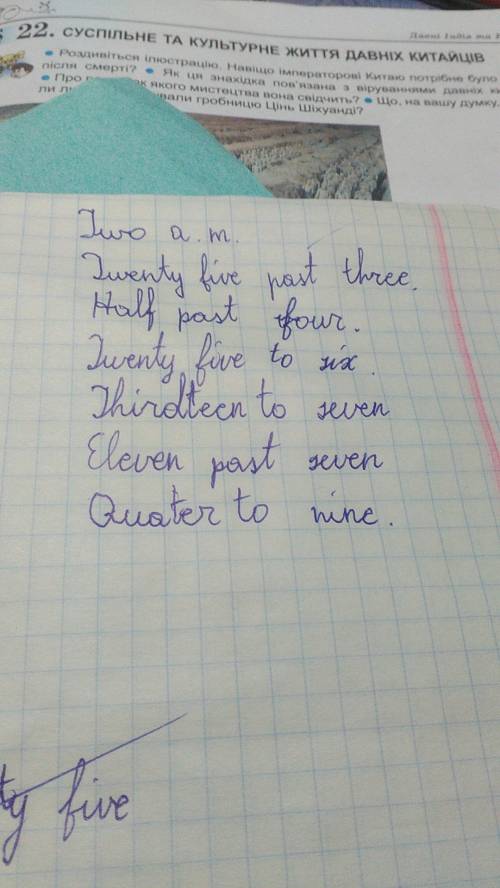 22. СУСПІЛЬНЕ ТА КУЛЬТУРНЕ ЖИТТЯ ДАВНІХ КИТАЙЦІВ
● Роздивіться ілюстрацію. Навіщо імператорові Китаю потрібне було
після смерті? ● Як ця знахідка пов'язана з віруваннями давніх
● Про якого мистецтва вона свідчить? ● Що, на вашу думку,
гробницю Цінь Шіхуанді?
Two a.m.
Twenty five past three.
Half past four.
Twenty five to six.
Thirdteen to seven
Eleven past seven
Quater to nine.
ty five